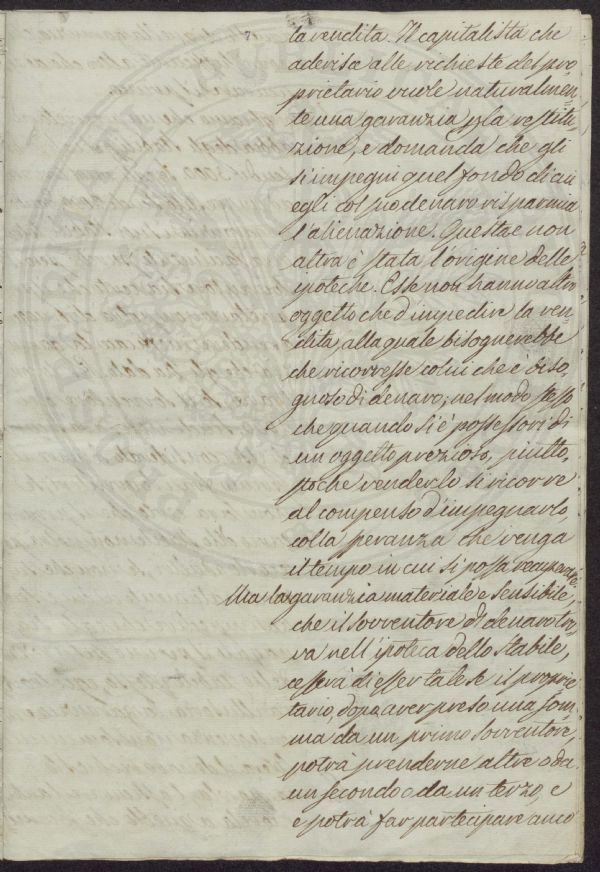 7
la vendita. Il capitalista che
aderisce alle richieste del pro=
prietario vuole naturalmen=
te una garanzia p la restitu=
zione, e domanda che gli
si impegni quel fondo di cui
egli col suo denaro risparmia
l'alienazione. Questa e non
altra è stata l'origine delle
ipoteche. Esse non hanno altro
oggetto che d'impedire la ven=
dita, alla quale bisognerebbe
che ricorresse colui che è biso,
gnoso di denaro; nel modo stesso
che quando si è possessori di
un oggetto prezioso, piutto,
sto che venderlo si ricorre
al compenso d'impegnarlo,
colla speranza che venga
il tempo in cui si possa recuperare.
Ma la garanzia materiale e sensibile,
che il sovventore di denaro tro=
va nell'ipoteca dello stabile,
cesserà di esser tale se il proprie
tario, dopo aver preso una som=
ma da un primo sovventore,
potrà prenderne altre o da
un secondo o da un terzo, e
e potrà far partecipare anco